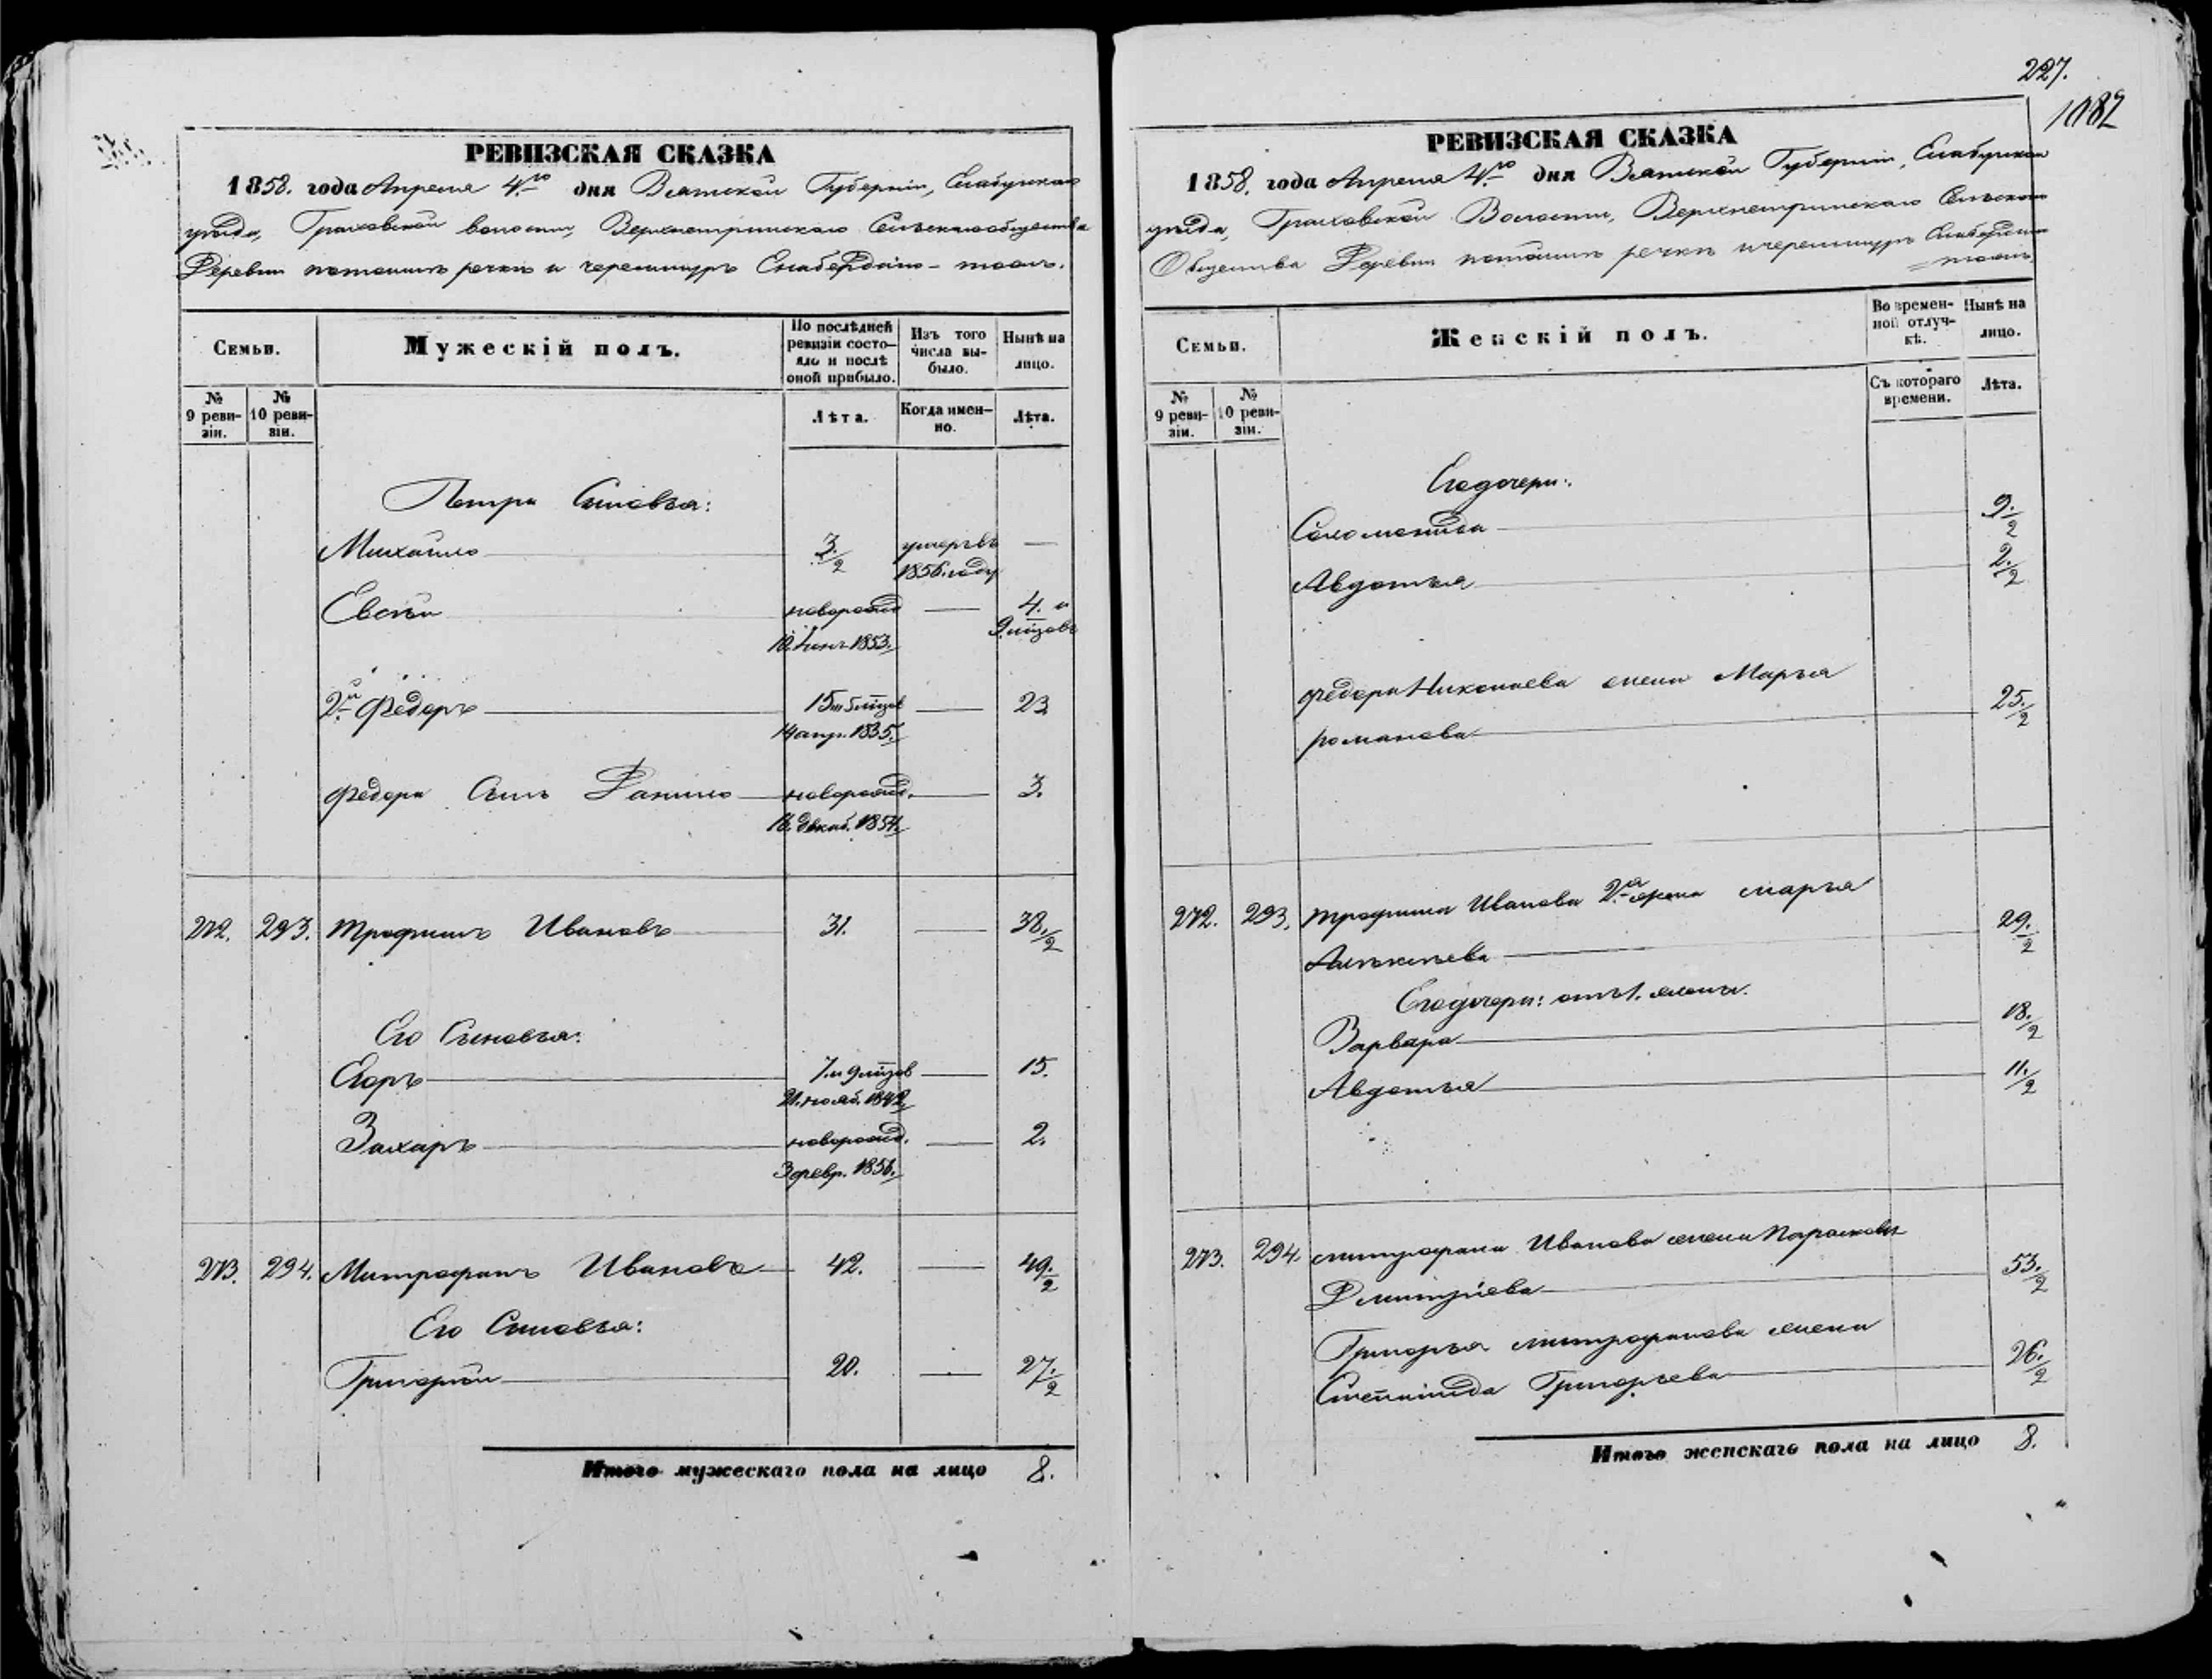 РЕВИЗСКАЯ СКАЗКА
1858. года Апреля 4го дня Вятской Губерніи, Елабужскаго
уѣзда, Граховской волости, Верхнетринскаго Сельскаго общества
Деревни починокъ речки и
Семьи.
Мужескій полъ.
По послѣдней ревизіи состояло и послѣ оной прибыло.
Изъ того числа выбыло.
Нынѣ на лицо.
№ 9 ревизіи.
№ 10 ревизіи.
Лѣта.
Когда именно.
Лѣта.
Петра Сыновья:
Михайло 3./2 умеръ въ —
1856. году
Евсѣй новорожд — 4. и
10. Іюн. 1853. 9. мѣсѣцовъ
2й Федоръ 15 и 5 мѣсцов — 23
14 апр. 1835.
Федора Сынъ Данило новорожд. — 3.
16. декаб. 1854.
272. 293. Трофимъ Ивановъ 31. — 38./2
Его Сыновья:
Егоръ 7. и 9 мѣсцов — 15.
21. нояб. 1842.
Захаръ новорожд. — 2.
3 февр. 1856.
273. 294. Митрофанъ Ивановъ 42. — 49./2
Его Сыновья:
Григорій 20. — 27./2
Итого мужескаго пола на лицо 8.
227.
1082
РЕВИЗСКАЯ СКАЗКА
1858. года Апреля 4го дня Вятской Губерніи, Елабужскаго
уѣзда, Граховской Волости, Верхнетринскаго Сельскаго
Общества Деревни починокъ речки
Семьи.
Женскій полъ.
Во временной отлучкѣ.
Нынѣ на лицо.
№ 9 ревизіи.
№ 10 ревизіи.
Съ котораго времени.
Лѣта.
Его дочери:
Соломонида 9./2
Авдотья 2./2
Федора Николаева жена Марья
романова 25./2
272. 293. Трофима Иванова 2я жена Марья
Алексѣева 29./2
Его дочери: отъ 1. жены.
Варвара 18./2
Авдотья 11./2
273. 294. Митрофана Иванова жена Парасковья
Дмитріева 53./2
Григорья Митрофанова жена
Степанида Григорьева 26./2
Итого женскаго пола на лицо 8.